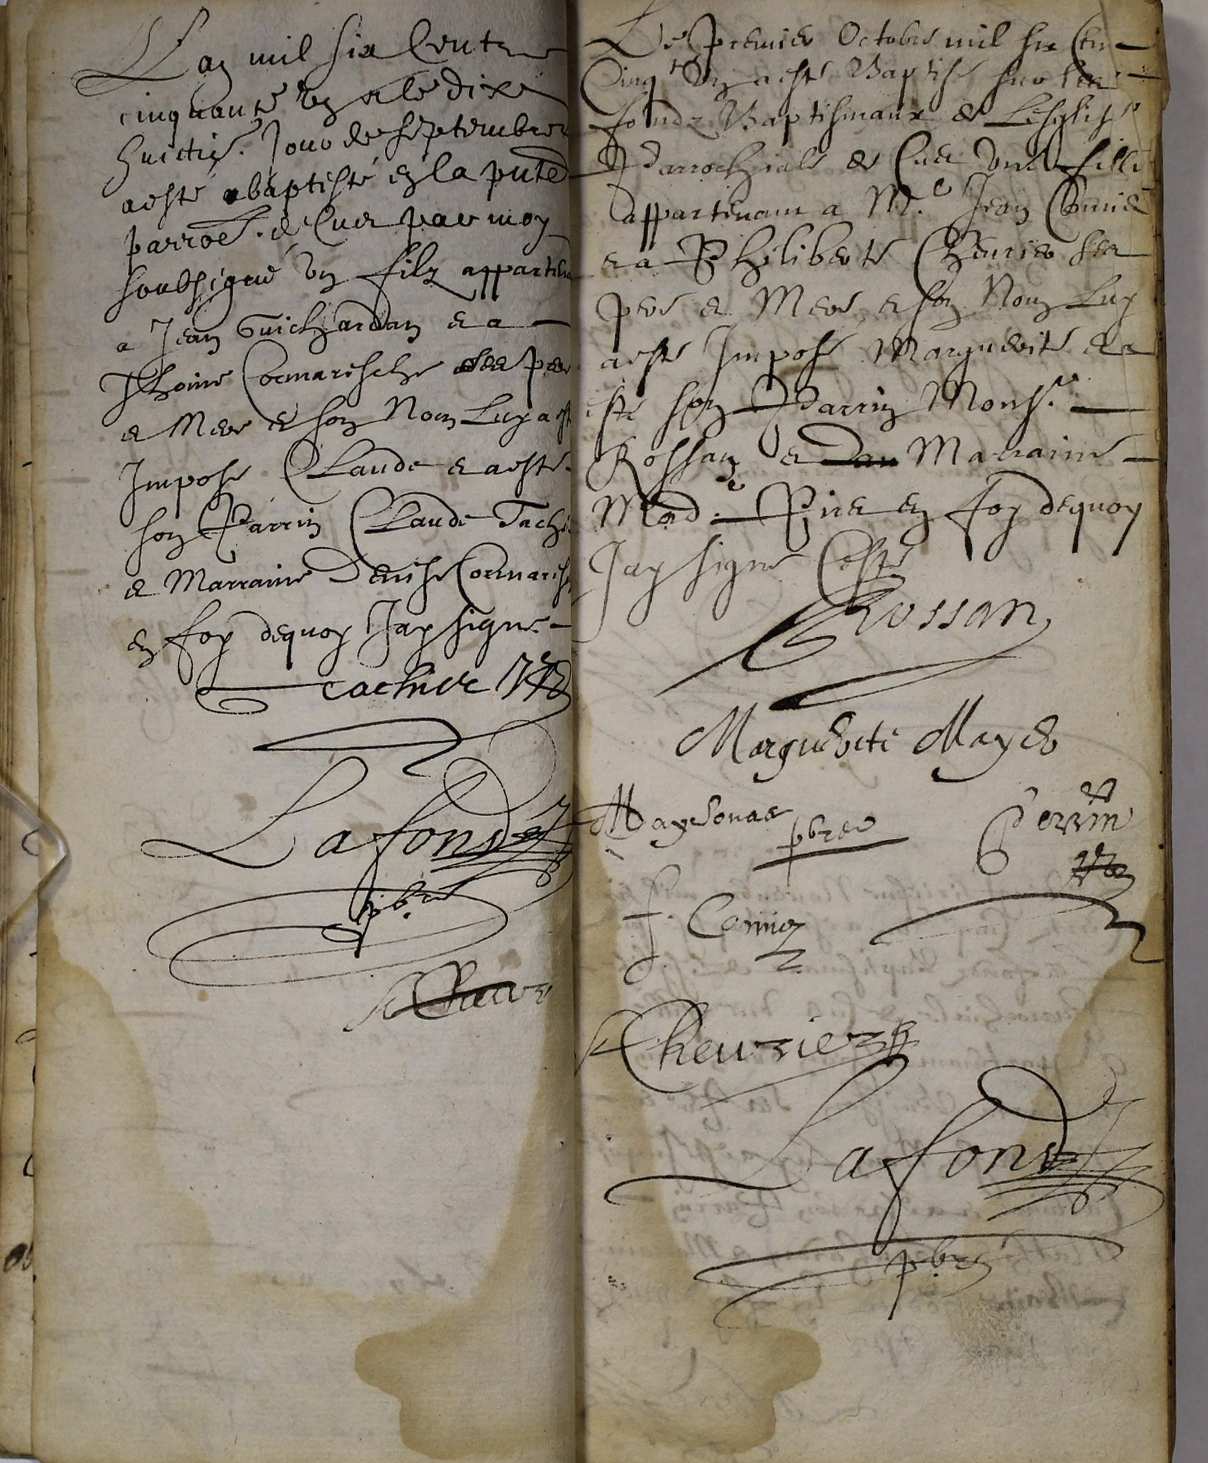 L'an mil six Centz
cinquante un et le dix
huictie. Jour de septembre
a esté baptisé en la pnte
parroe. de Cuer par moy
soubsigné un filz appartena
a Jean Guichardan et a
Thoine Cormaresche ses pere
et Mere et son Nom Luy a est
Impose Claude et a esté
son Parrin Claude Tach
et Marraine Denise Cormaresc
en foy dequoy J'ay signe
Lafond
pbre
Le Premier Octobre mil six Cen
Cinqt. un a esté Baptisé sur les
fondz Baptismaux de L'esglise
Parrochiale de Cuer une fille
appartenant a Me. Jean Connier
et a Philiberte Cheurier ses
pere et Mere et son Nom Luy
a esté Imposé Marguerite et a
esté son Parrin Monsr.
Rossan et Marraine
Made. en foy dequoy
J'ay signe Cesté
Rossan
Marguerite Mayeb
pbre
Perrin
Cheurier
Lafond
pbre